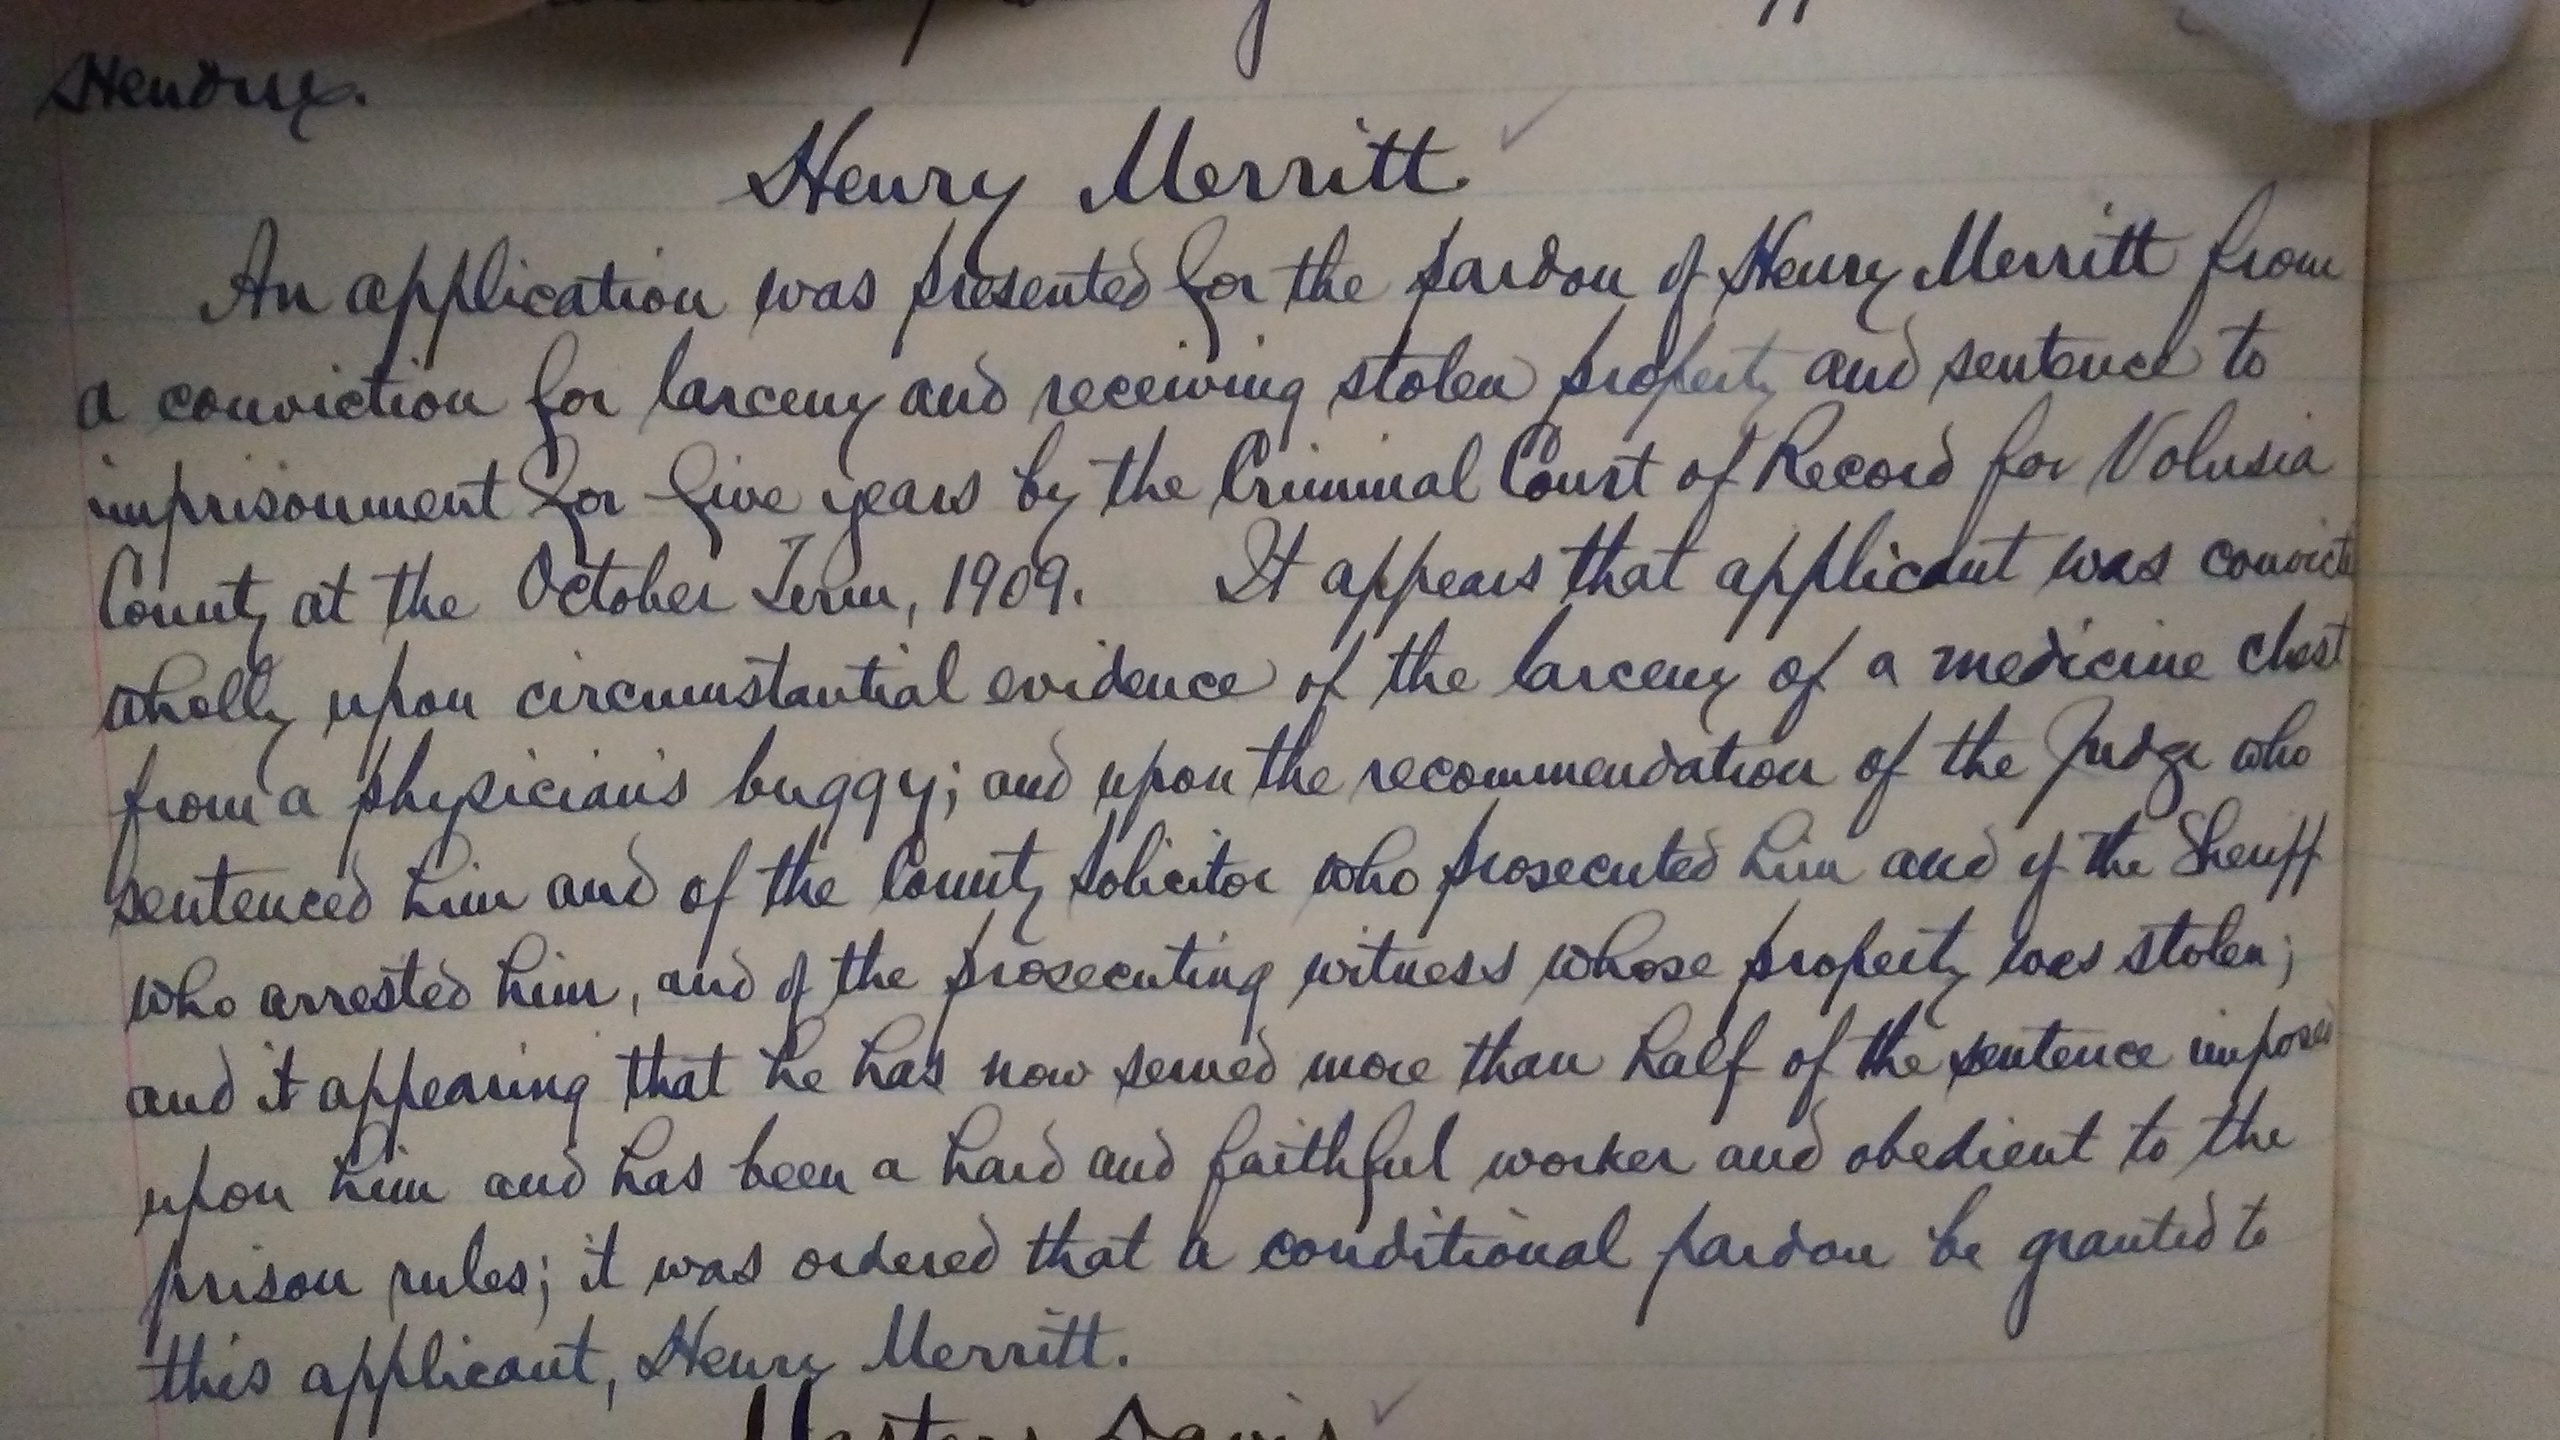 Hendrix.
Henry Merritt.
An application was presented for the pardon of Henry Merritt from
a conviction for larceny and receiving stolen property and sentenced to
imprisonment for five years by the Criminal Court of Record for Volusia
County at the October Term, 1909. It appears that applicant was
wholly upon circumstantial evidence of the larceny of a medicine chest
from a physicians buggy; and upon the recommendation of the Judge who
sentenced him and of the County Solicitor who prosecuted him and of the Sheriff
who arrested him, and of the prosecuting witness whose property was stolen;
and it appearing that he has now served more than half of the sentence
upon him and has been a hard and faithful worker and obedient to the
prison rules; it was ordered that a conditional pardon be granted to
this applicant, Henry Merritt.